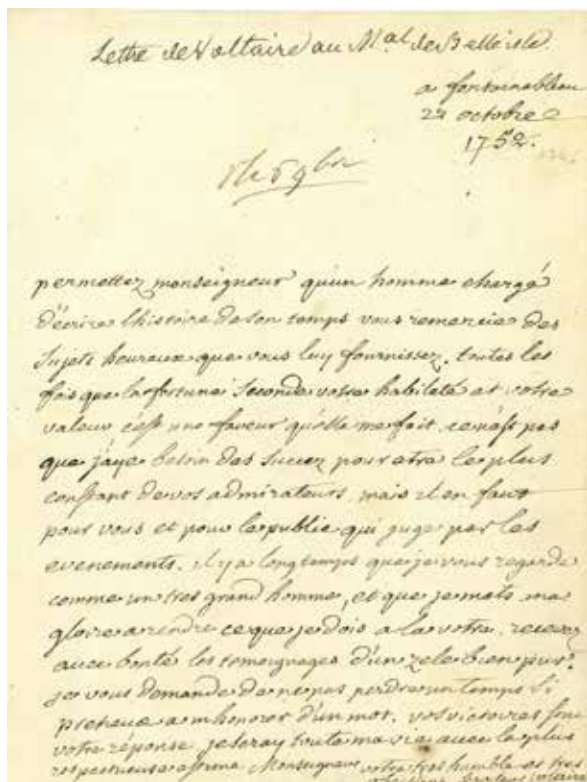 Lettre de Voltaire au Mal de Belle isle.
a fontainebleau
22 octobre
1752.
permettez monseigneur qu'un homme chargé
d'écrire l'histoire de son temps vous remercie des
sujets heureux que vous luy fournissez. toutes les
fois que la fortune seconde votre habileté et votre
valeur c'est une faveur qu'elle me fait. ce n'est pas
que j'aye besoin des succez pour etre le plus
constant de vos admirateurs, mais il en faut
pour vous et pour le public qui juge par les
evenements. il y a longtemps que je vous regarde
comme un tres grand homme, et que je mets ma
gloire a rendre ce que je dois a la votre. recevez
avec bonté les temoignages d'un zele bien pur.
je vous demande de ne pas perdre un temps si
pretieux a m'honorer d'un mot. vos victoires sont
votre réponse. je seray toute ma vie avec la plus
respectueuse estime Monseigneur votre tres humble et tres